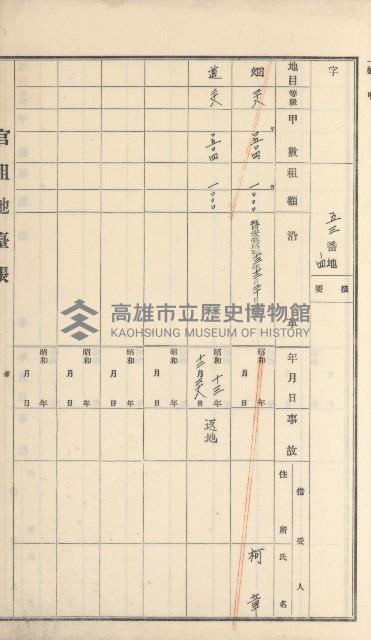 字
五三番地
一四
摘要
地目
等級
甲數
租額
沿革
年月日
事故
借受人
住所
氏名
畑
甲
〇五〇四
円
一〇〇〇
昭和
年
月
日
柯章
道
〇五〇四
一〇〇〇
昭和十三年
十二月二八日
返地
昭和
年
月
日
昭和
年
月
日
昭和
年
月
日
昭和
年
月
日
官租地臺帳
高雄市立歷史博物館
KAOHSIUNG MUSEUM OF HISTORY